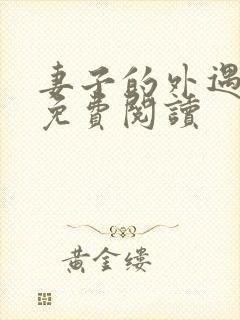 妻子的外遇
免費閱讀
黃金縷